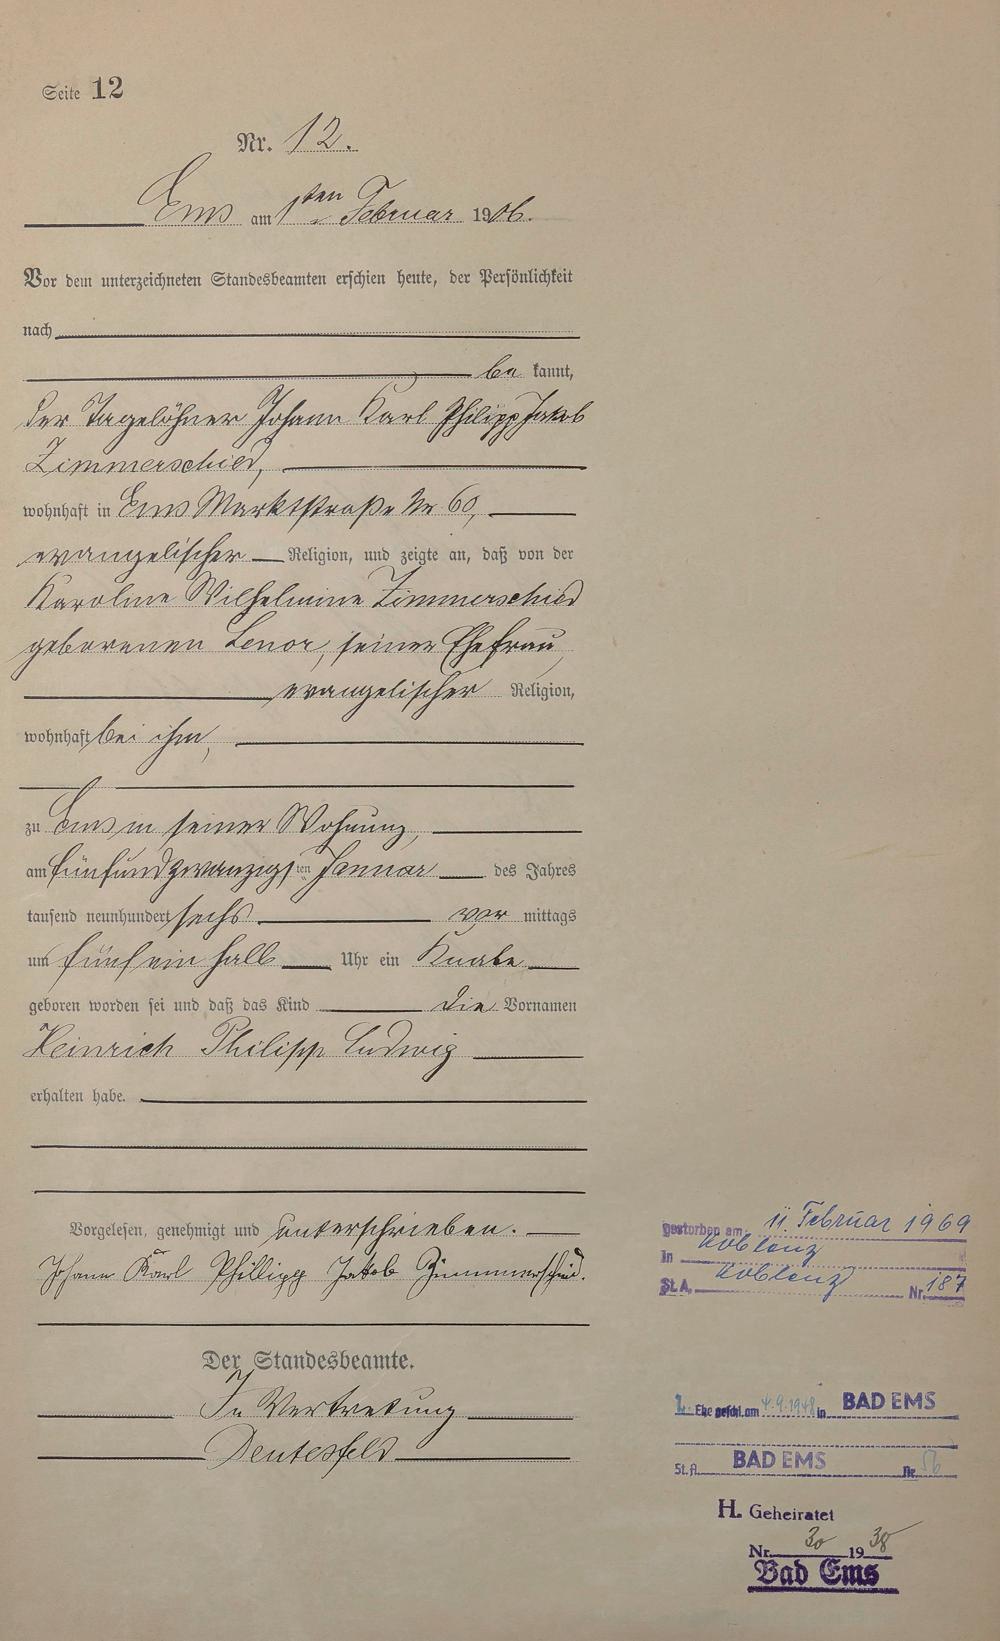 Seite 12
Nr. 12.
Ems am 1ten Februar 1906.
Vor dem unterzeichneten Standesbeamten erschien heute, der Persönlichkeit
nach
be kannt,
der Tagelöhner Johann Karl Philipp Jakob
Zimmerschied,
wohnhaft in Ems Marktstraße Nr 60,
evangelischer Religion, und zeigte an, daß von der
Karoline Wilhelmine Zimmerschied
geborenen Lenor, seiner Ehefrau,
evangelischer Religion,
wohnhaft bei ihm,
zu Ems in seiner Wohnung,
am fünfundzwanzigsten Januar des Jahres
tausend neunhundert sechs vor mittags
um fünfeinhalb Uhr ein Knabe
geboren worden sei und daß das Kind die Vornamen
Heinrich Philipp Ludwig
erhalten habe.
Vorgelesen, genehmigt und unterschrieben.
Johann Karl Phillipp Jakob Zimmerschied.
Der Standesbeamte.
In Vertretung
Deutesfeld
gestorben am 11. Februar 1969
In Koblenz
St.A. Koblenz Nr. 187
Ehe geschl. am 4.9.1948 in BAD EMS
St.A. BAD EMS Nr. 56
H. Geheiratet
Nr. 30 1938
Bad Ems